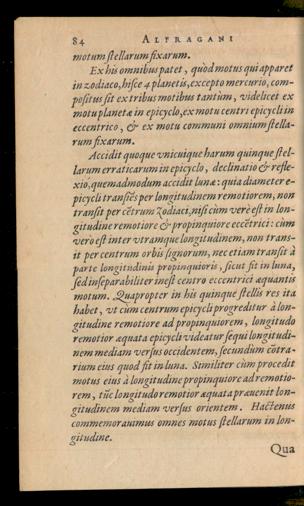 84 ALFRAGANI
motum stellarum fixarum.
Ex his omnibus patet, quòd motus qui apparet
in zodiaco, hisce 4 planetis, excepto mercurio, com-
positus sit ex tribus motibus tantùm, videlicet ex
motu planetæ in epicyclo, ex motu centri epicycli in
eccentrico, & ex motu communi omnium stella-
rum fixarum.
Accidit quoque vnicuique harum quinque stel-
larum erraticarum in epicyclo, declinatio & refle-
xio, quemadmodum accidit lunæ: quia diameter e-
picycli transiẽs per longitudinem remotiorem, non
transit per cẽtrum zodiaci, nisi cùm verè est in lon-
gitudine remotiore & propinquiore eccẽtrici: cùm
verò est inter vtramque longitudinem, non trans-
it per centrum orbis signorum, nec etiam transit à
parte longitudinis propinquioris, sicut fit in luna,
sed inseparabiliter inest centro eccentrici æquantis
motum. Quapropter in his quinque stellis res ita
habet, vt cùm centrum epicycli progreditur à lon-
gitudine remotiore ad propinquiorem, longitudo
remotior æquata epicycli videatur sequi longitudi-
nem mediam versus occidentem, secundùm cõtra-
rium eius quod fit in luna. Similiter cùm procedit
motus eius à longitudine propinquiore ad remotio-
rem, tũc longitudo remotior æquata præuenit lon-
gitudinem mediam versus orientem. Hactenus
commemorauimus omnes motus stellarum in lon-
gitudine.
Qua